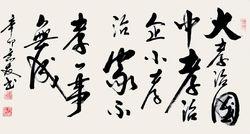 大孝治國
中孝治
企小孝
治家不
孝一事
無成
辛卯